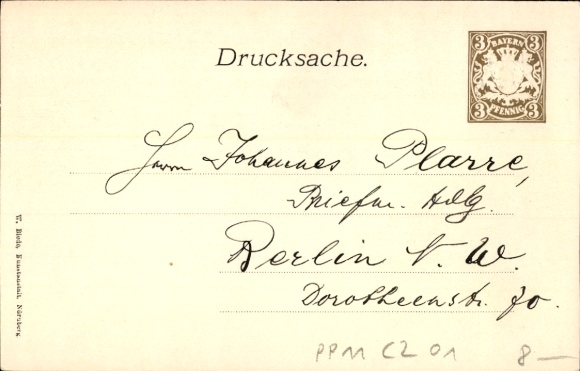 Drucksache.
3 BAYERN 3
3 PFENNIG 3
Herrn Johannes Plarre,
Briefm. Hdlg.
Berlin N. W.
Dorotheenstr. 70.
W. Biede, Kunstanstalt, Nürnberg
PP11 C2 01
8 —